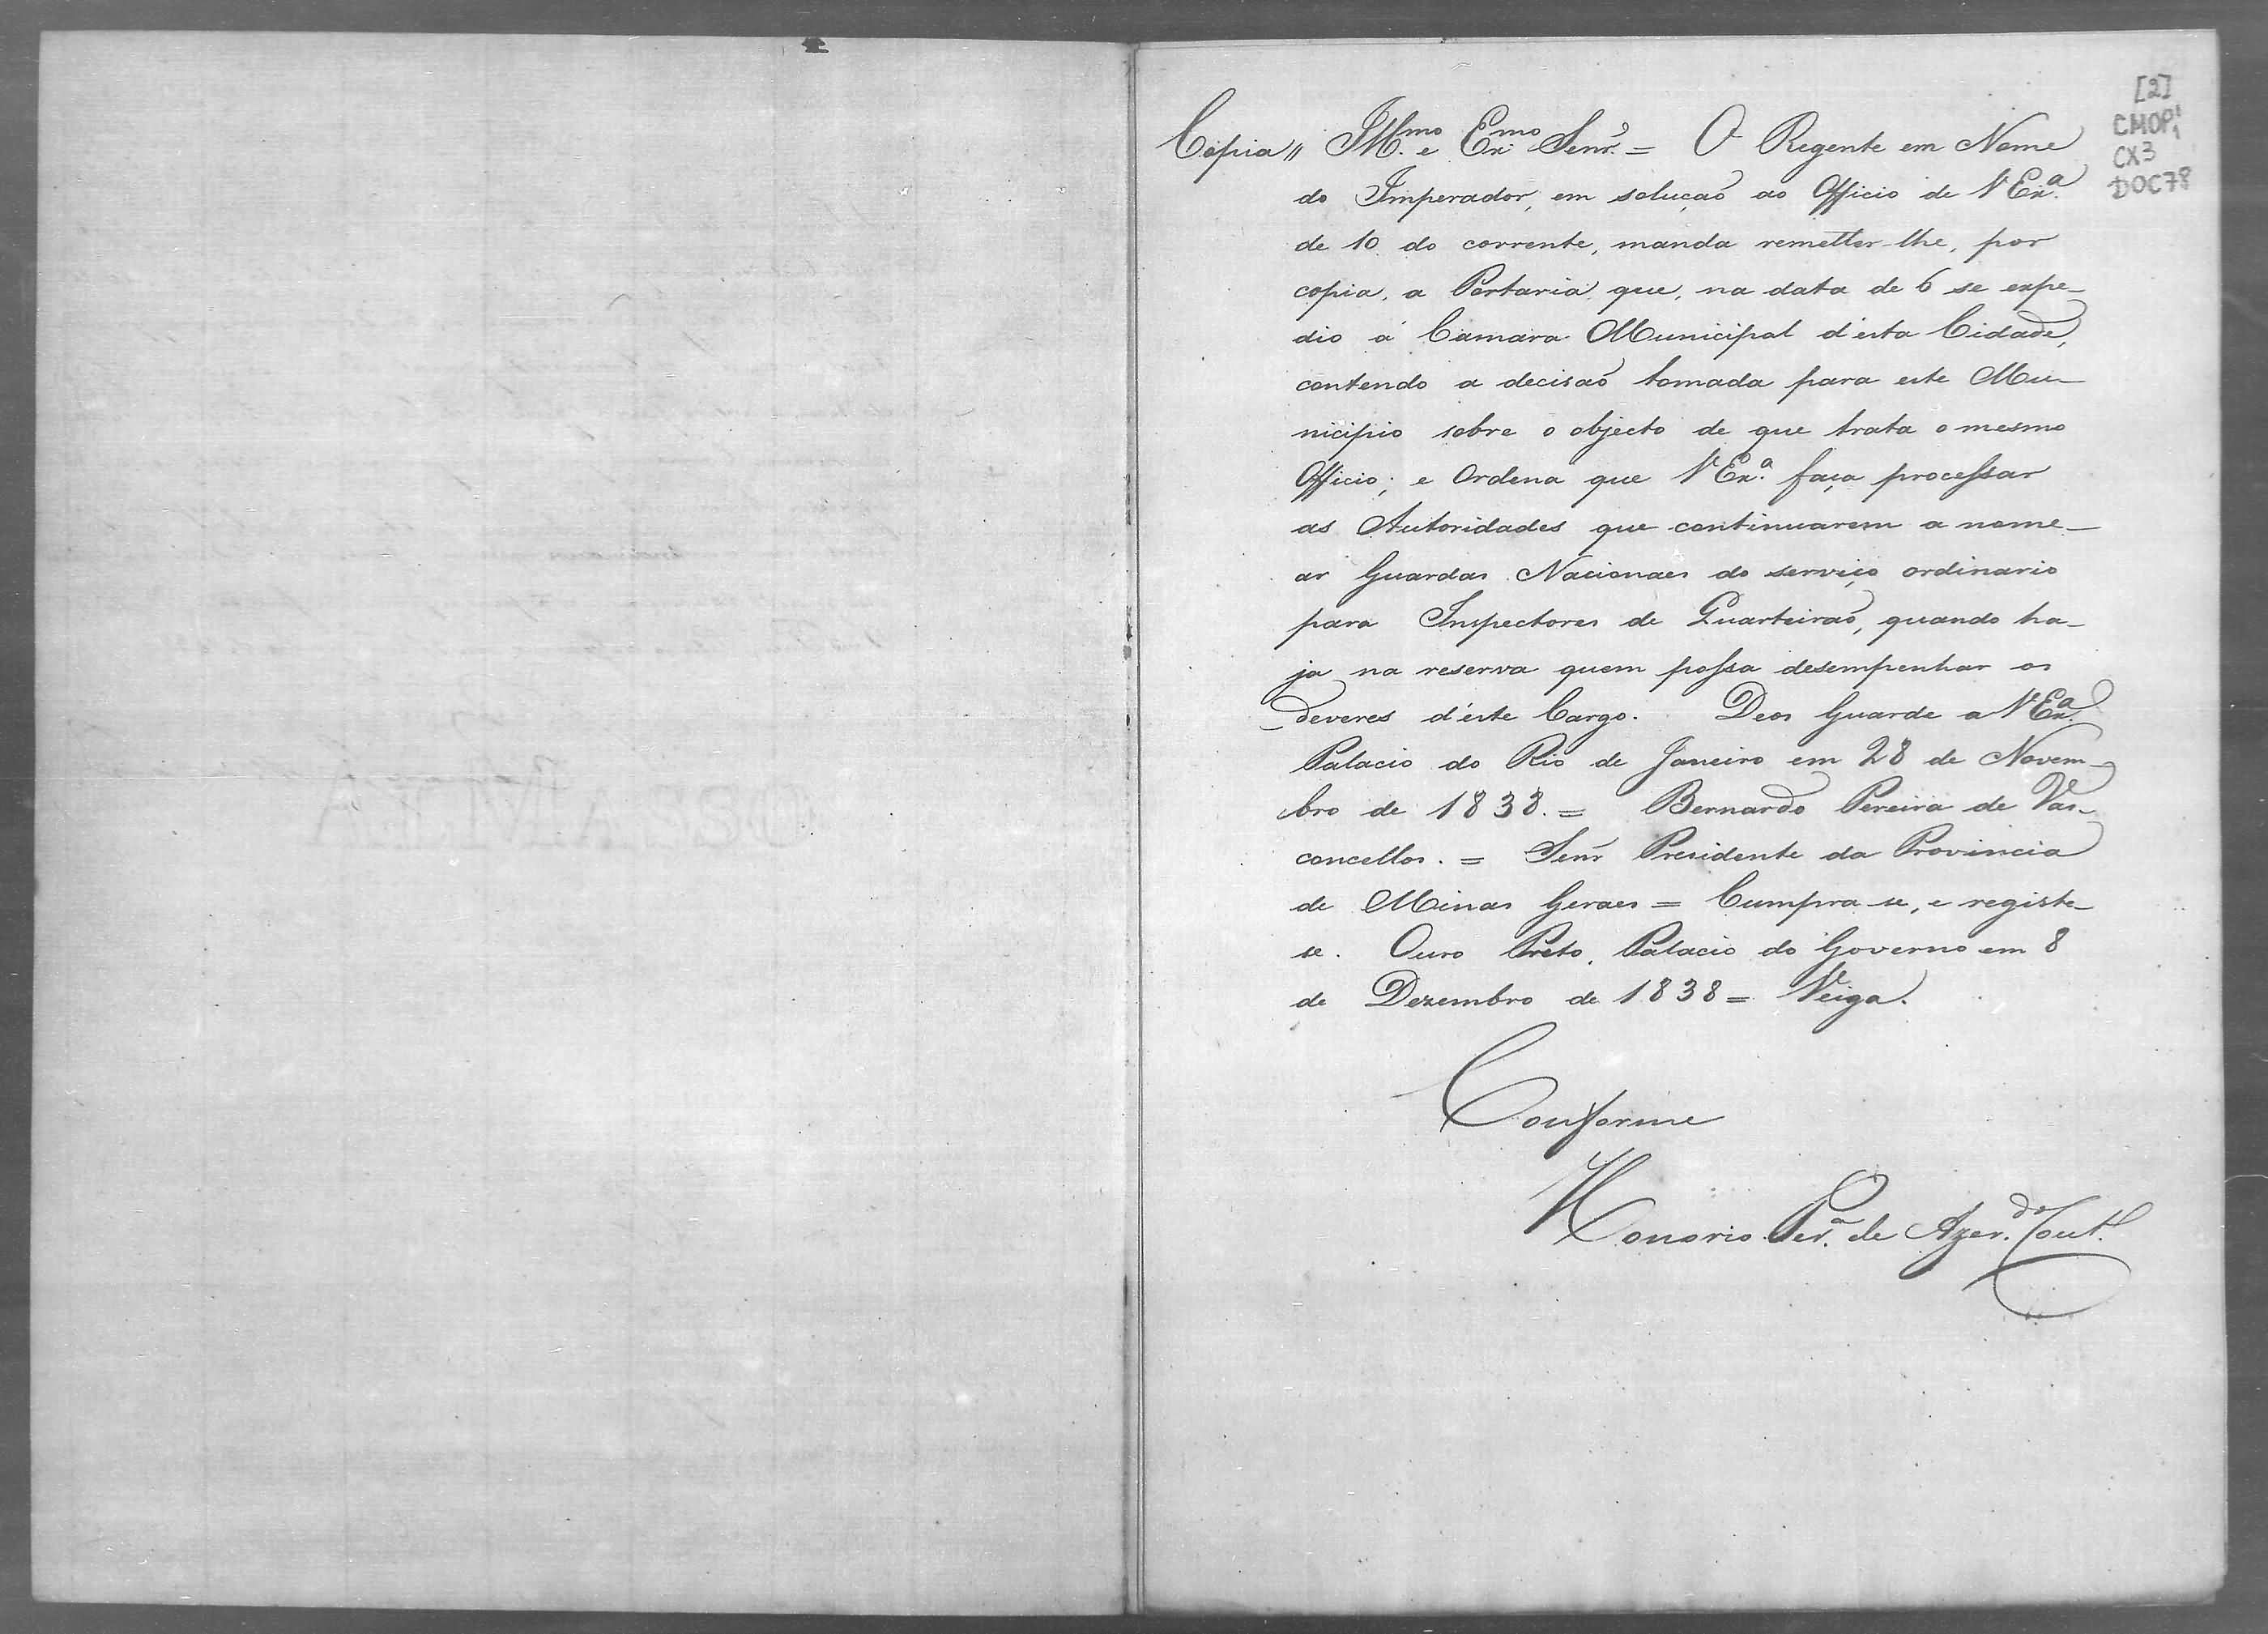 [2]
CMOP1
CX3
DOC78
Copia,, Illmo. e Exmo. Senr. = O Regente em Nome
do Imperador, em solução ao Officio de V Exa.
de 10 do corrente, manda remetter-lhe, por
copia, a Portaria que, na data de 6 se expe-
dio á Camara Municipal d'esta Cidade,
contendo a decisaõ tomada para este Mu-
nicipio sobre o objecto de que trata o mesmo
Officio; e Ordena que V Exa. faça processar
as Autoridades que continuarem a nome-
ar Guardas Nacionaes do serviço ordinario
para Inspectores de Quarteiraõ, quando ha-
ja na reserva quem possa desempenhar os
deveres d'este Cargo. Deos Guarde a V Exa.
Palacio do Rio de Janeiro em 28 de Novem-
bro de 1838. = Bernardo Pereira de Vas-
concellos. = Senr Presidente da Provincia
de Minas Geraes = Cumpra-se, e registe-
se. Ouro Preto, Palacio do Governo em 8
de Dezembro de 1838 = Veiga.
Conforme
Honorio Per.a de Azer.do Cout.